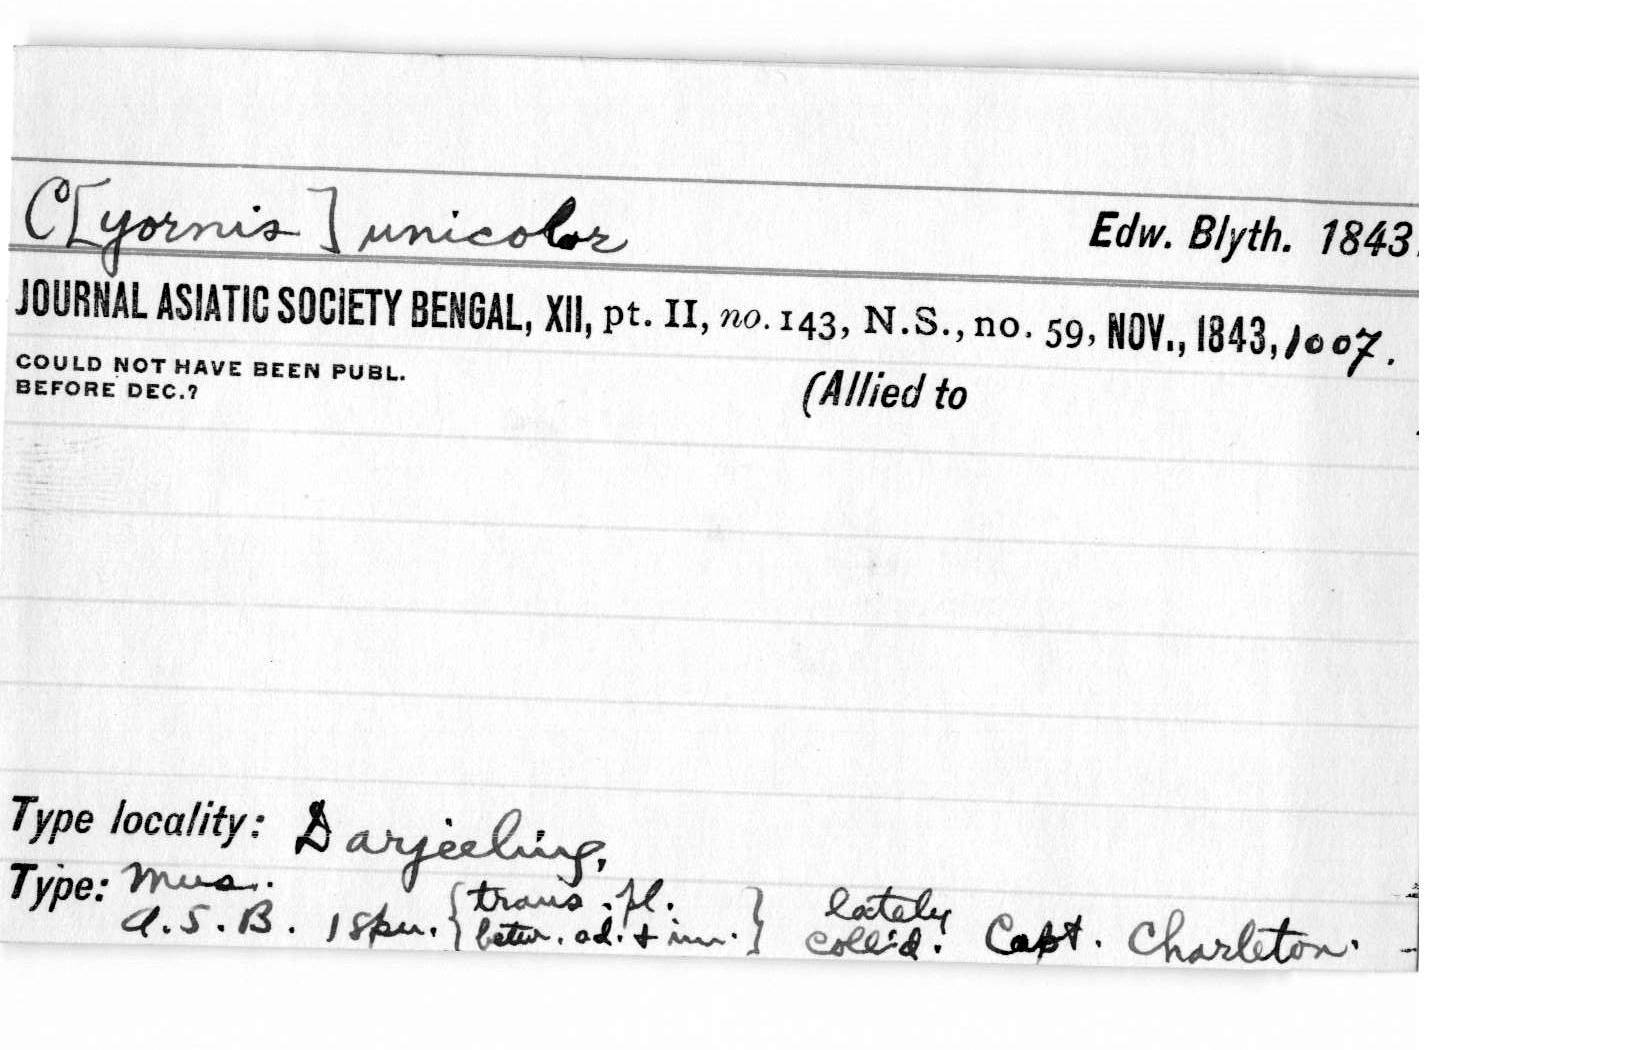 C[yornis] unicolor Edw. Blyth. 1843.
JOURNAL ASIATIC SOCIETY BENGAL, XII, pt. II, no. 143, N.S., no. 59, NOV., 1843, 1007.
COULD NOT HAVE BEEN PUBL.
BEFORE DEC.?
(Allied to
Type locality: Darjeeling,
Type: Mus.
A.S.B. 1 spm. {trans. pl. betw. ad. + imm.} lately coll'd. Capt. Charleton.